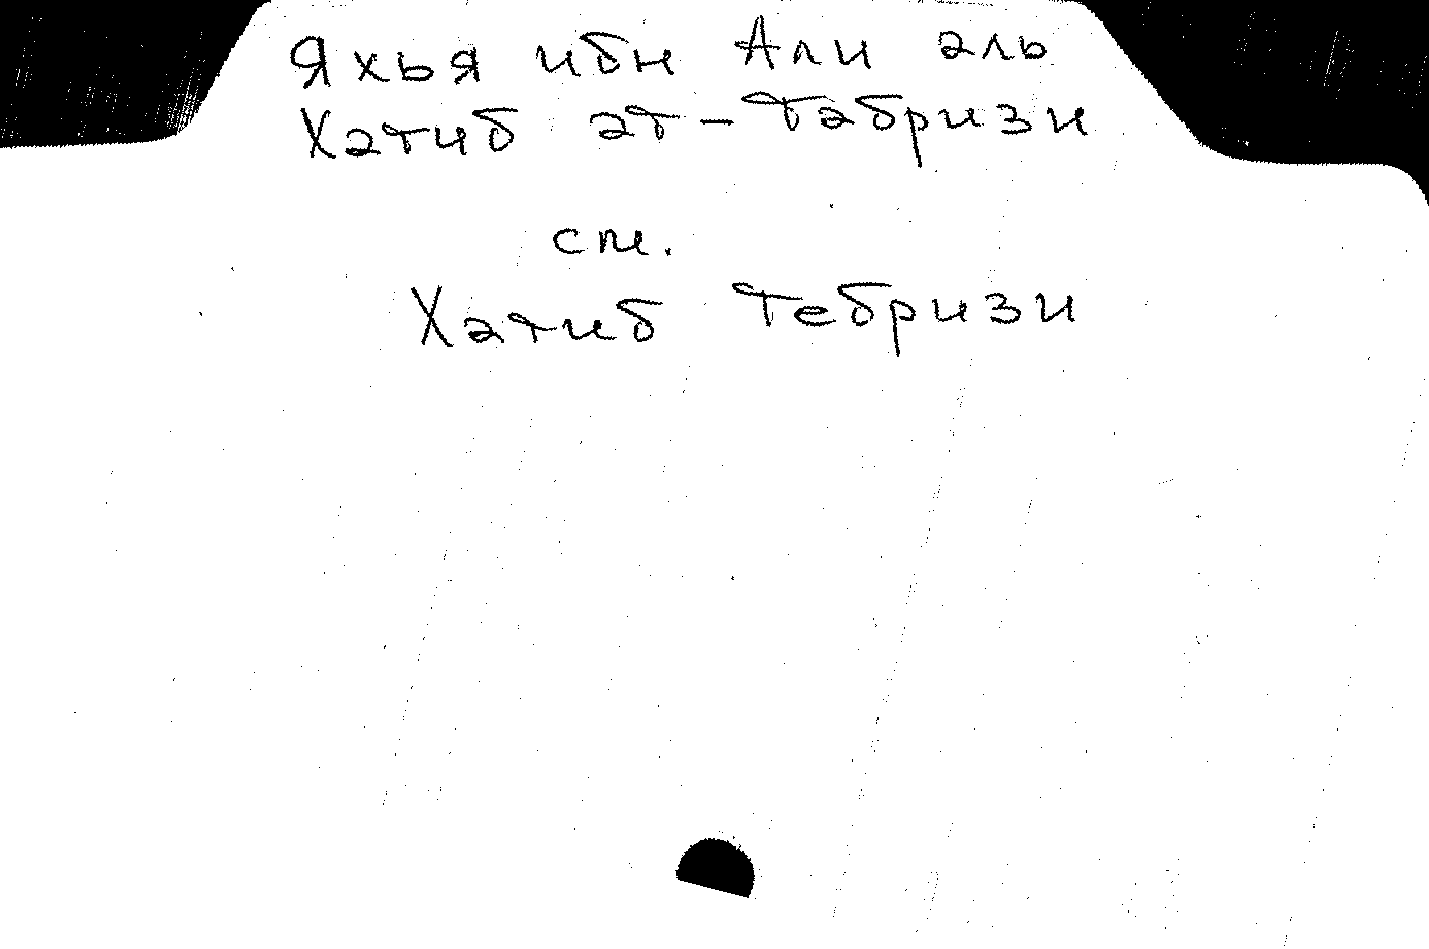 Яхья ибн Али аль
Хатиб ат-Табризи
см.
Хатиб Тебризи